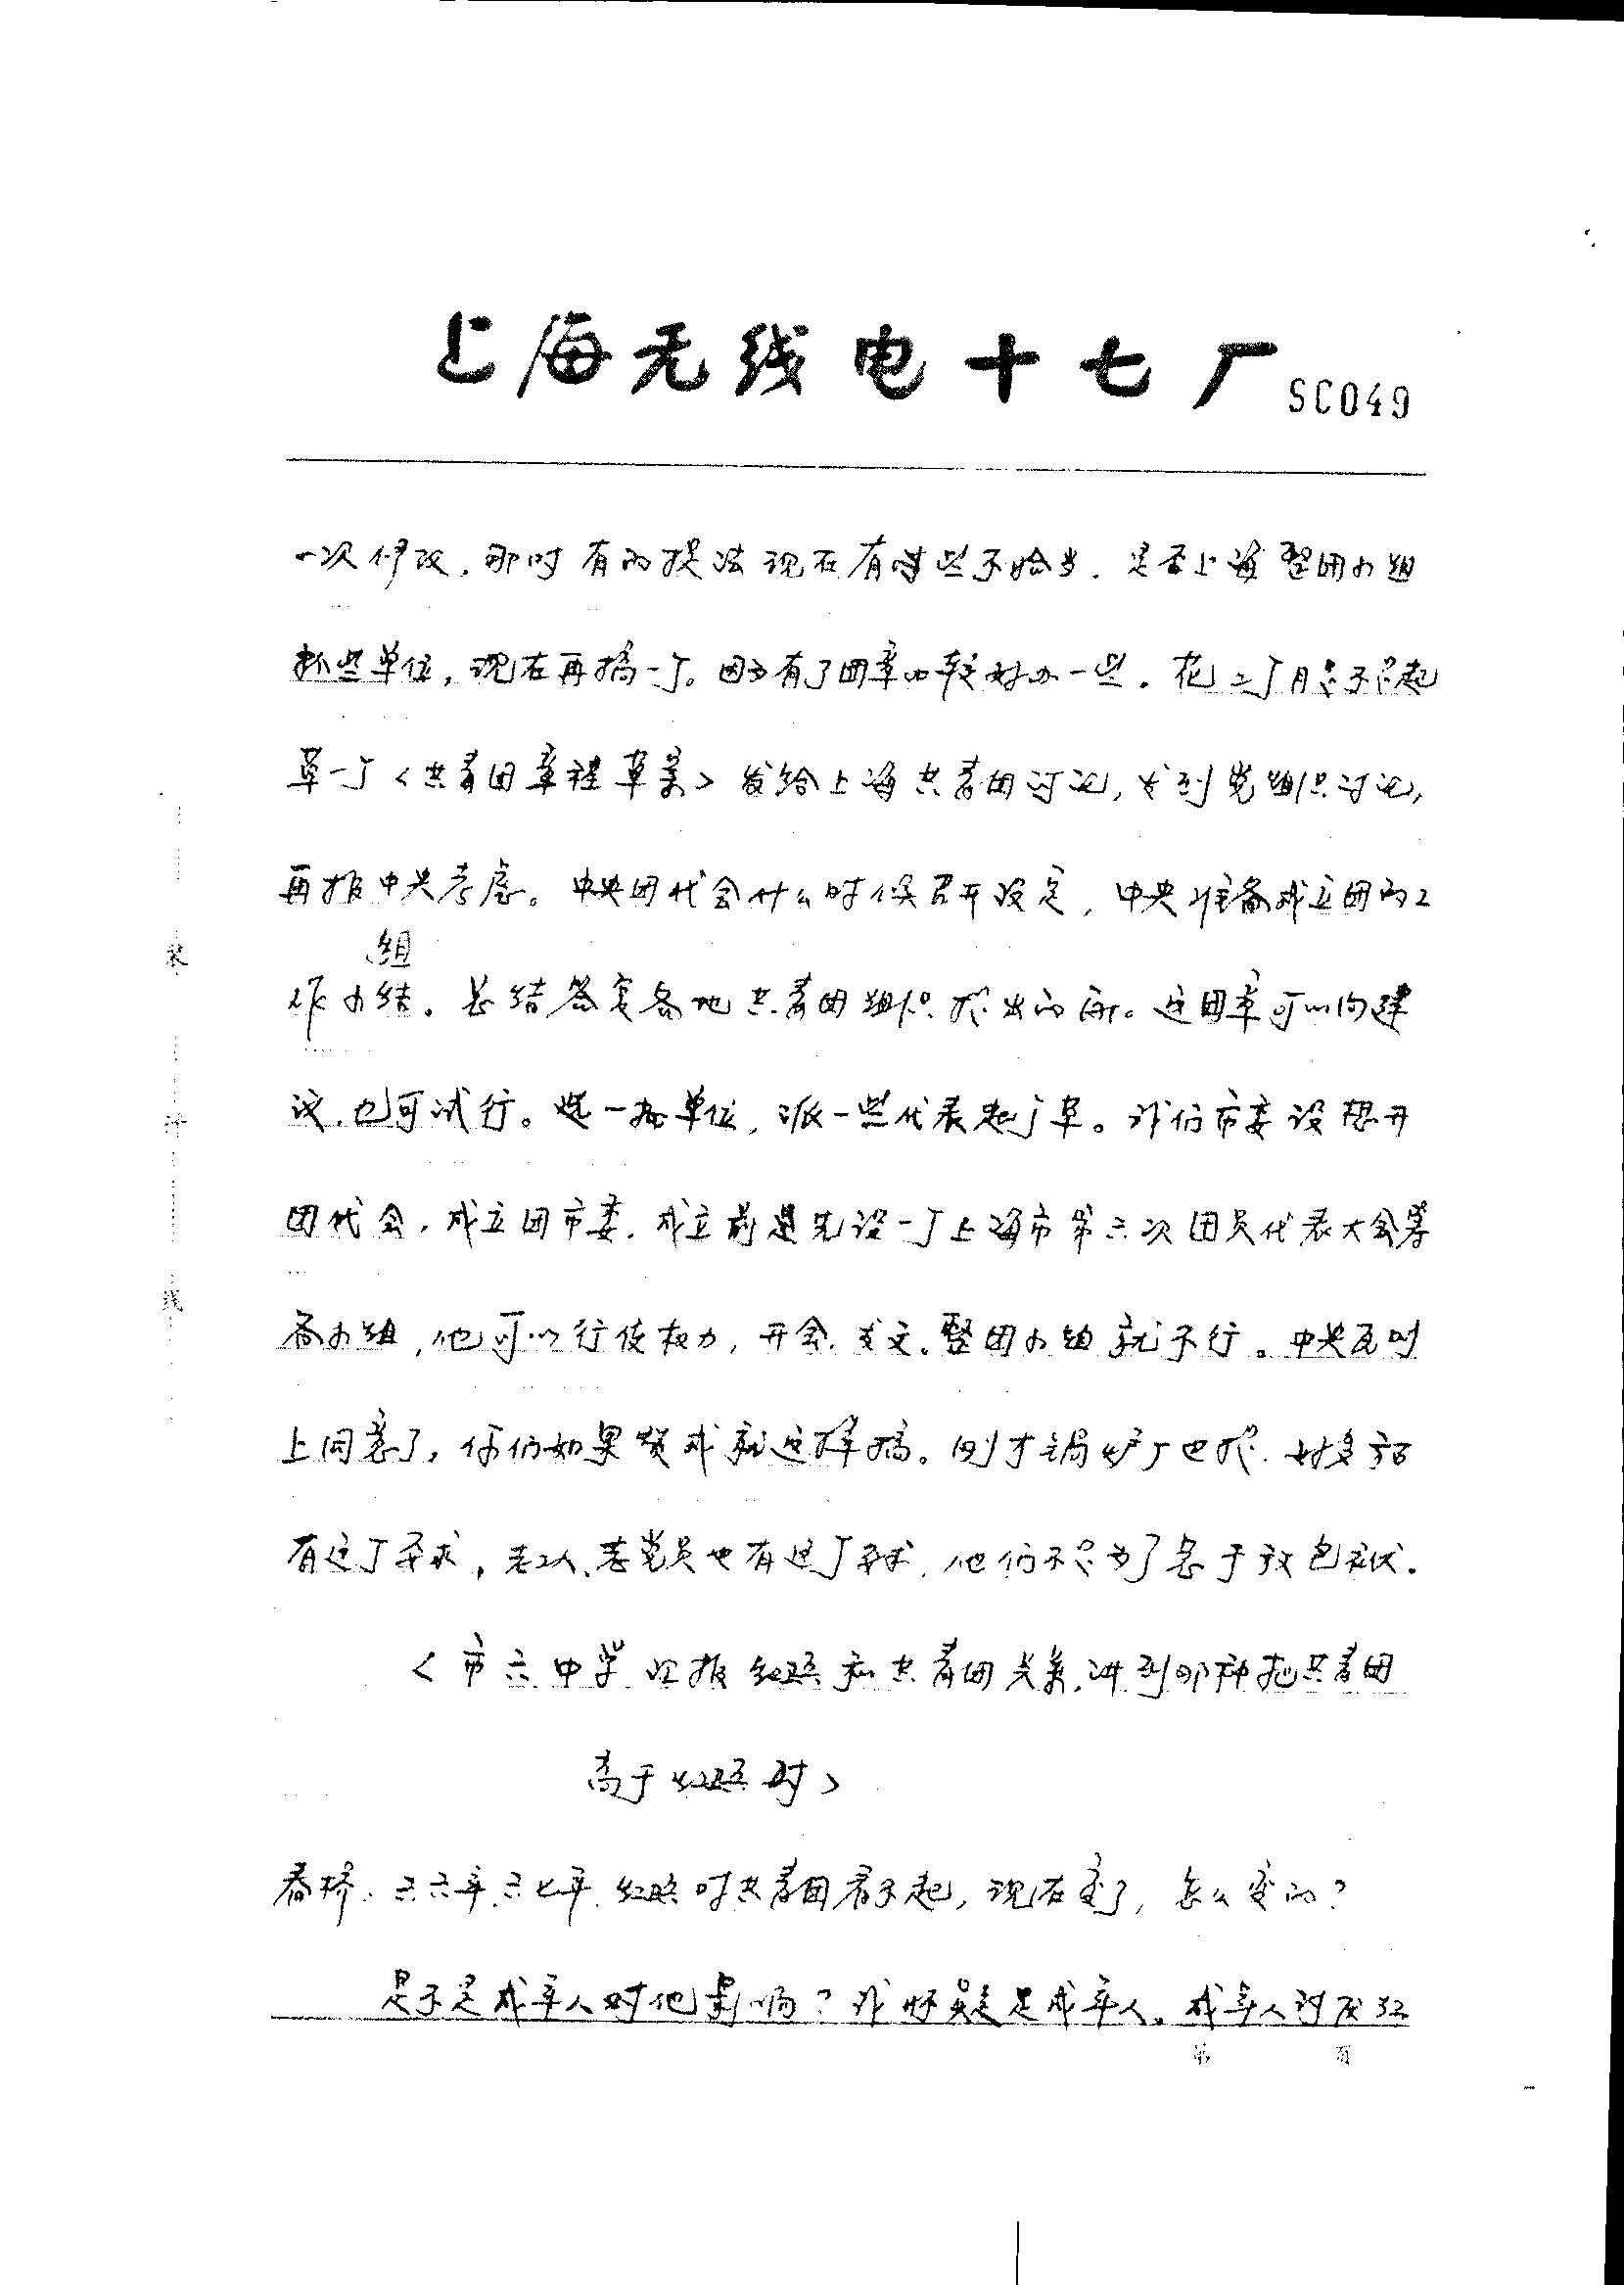 上海无线电十七厂 SC049
一次修改,那时有的提法现在有些不恰当.是否上海整团小组
抓些单位,现在再搞一个。因为有了团章比较好办一些.花二个月起
草一个<共青团章程草案>发给上海共青团讨论,发到党组织讨论,
再报中央考虑。中央团代会什么时候召开没定,中央准备成立团的工
组
作小结.总结答复各地共青团组织提出的。这团章可以向建
议.也可试行。选一批单位,派一些代表起个草。我们市委设想开
团代会.成立团市委.成立前是先设一个上海市第六次团员代表大会筹
备小组,他可以行使权力,开会.发文.整团小组就不行。中央
上同意了,你们如果赞成就这样搞。刚才锅炉厂也提.好多
有这个要求,老工人.老党员也有这个要求.他们不只为了急于放包袱.
<市六中学汇报红卫兵和共青团关系.讲到那种把共青团
高于红卫兵时>
春桥.六六年.六七年.红卫兵对共青团看不起,现在变了,怎么变的?
是不是成年人对他影响?我怀疑是成年人。成年人讨厌红
装
订
线
第 页